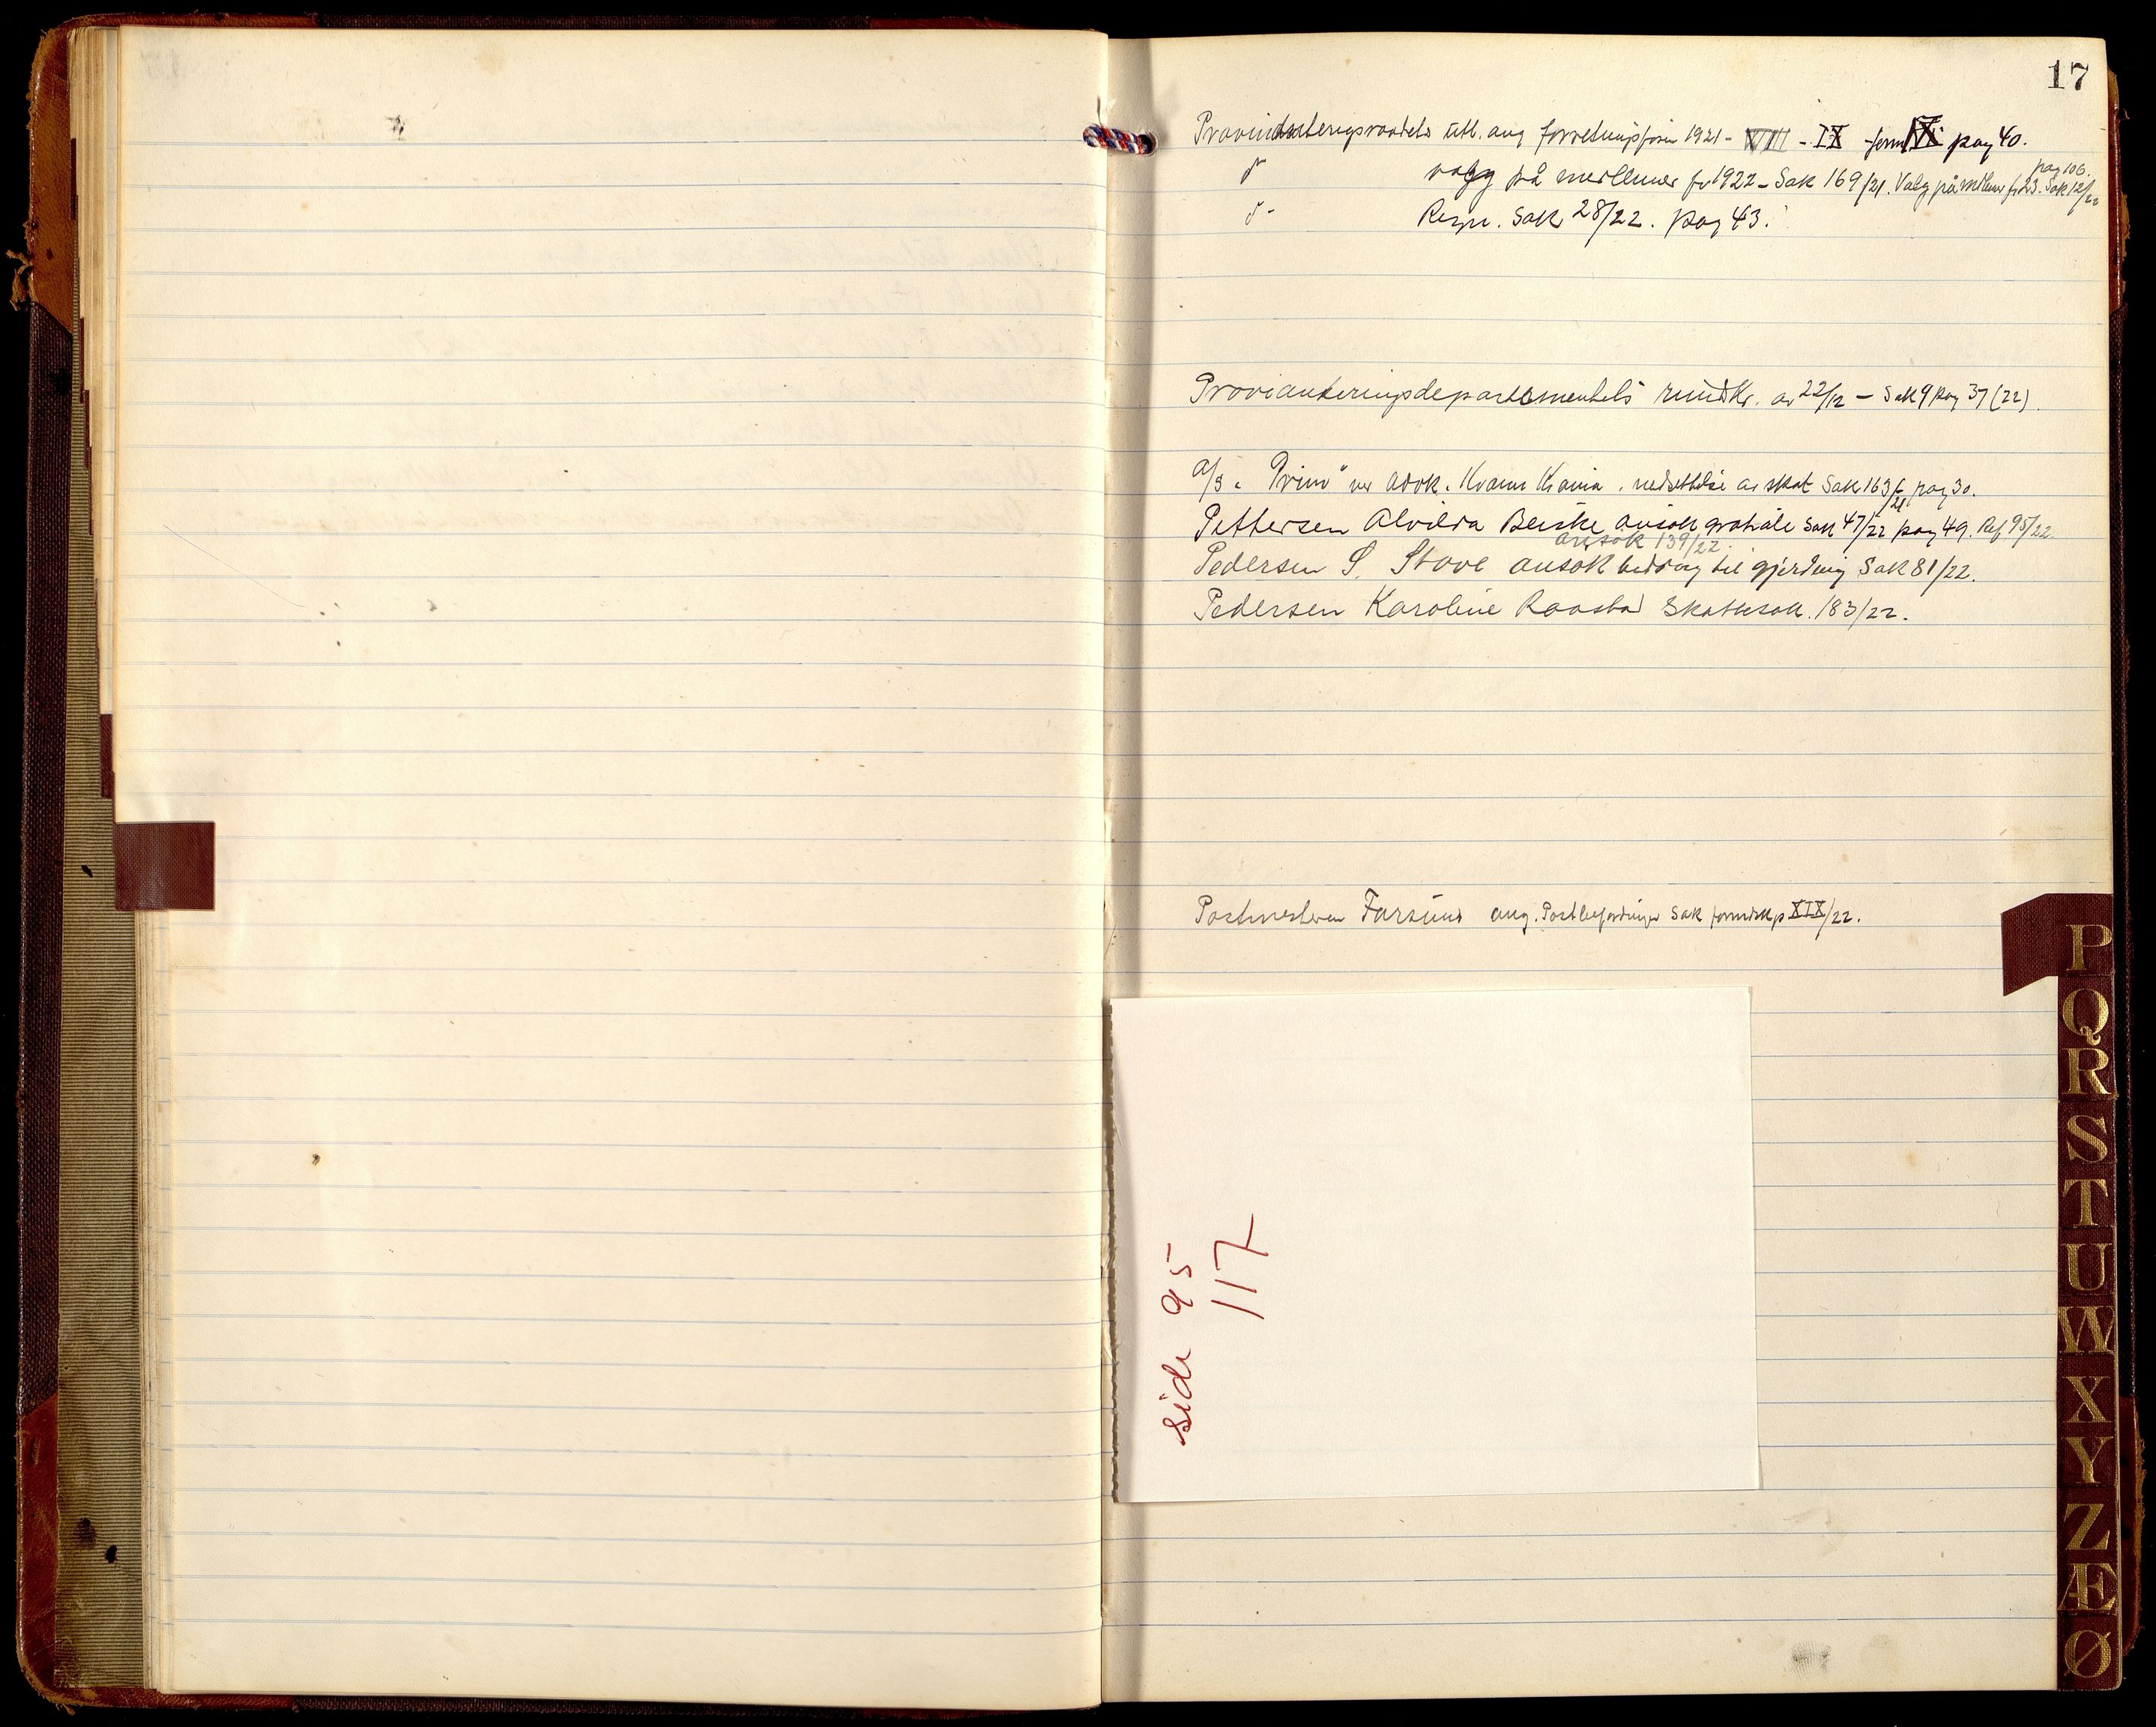 17
Provianteringsraadets utl. ang forretningsføren 1921 - VIII - IX - form XI pag 40.
d° valg på medlemer for 1922 - Sak 169/21. Valg på medlemer for 23. Sak 12/22 pag 106.
d° - Regn. Sak 28/22. pag 43.
Provianteringsdepartementets rundskr. av 22/12 - Sak 9 pag 37 (22).
A/S. "Prim" ved advk. Kvam Krania. nedsettelse av skat Sak 163/21 pag 30.
Pettersen Alvilda Beiske ansøk gratiale Sak 47/22 pag 49. Ref 95/22.
ansøk 139/22
Pedersen S. Stave ansøk bidrag til gjerding Sak 81/22.
Pedersen Karoline Raastad Skattesak. 183/22.
Postmesteren Farsund ang. Postbefordringen Sak formdskp XIX/22.
side 95
117
P
Q
R
S
T
U
W
X
Y
Z
Æ
Ø